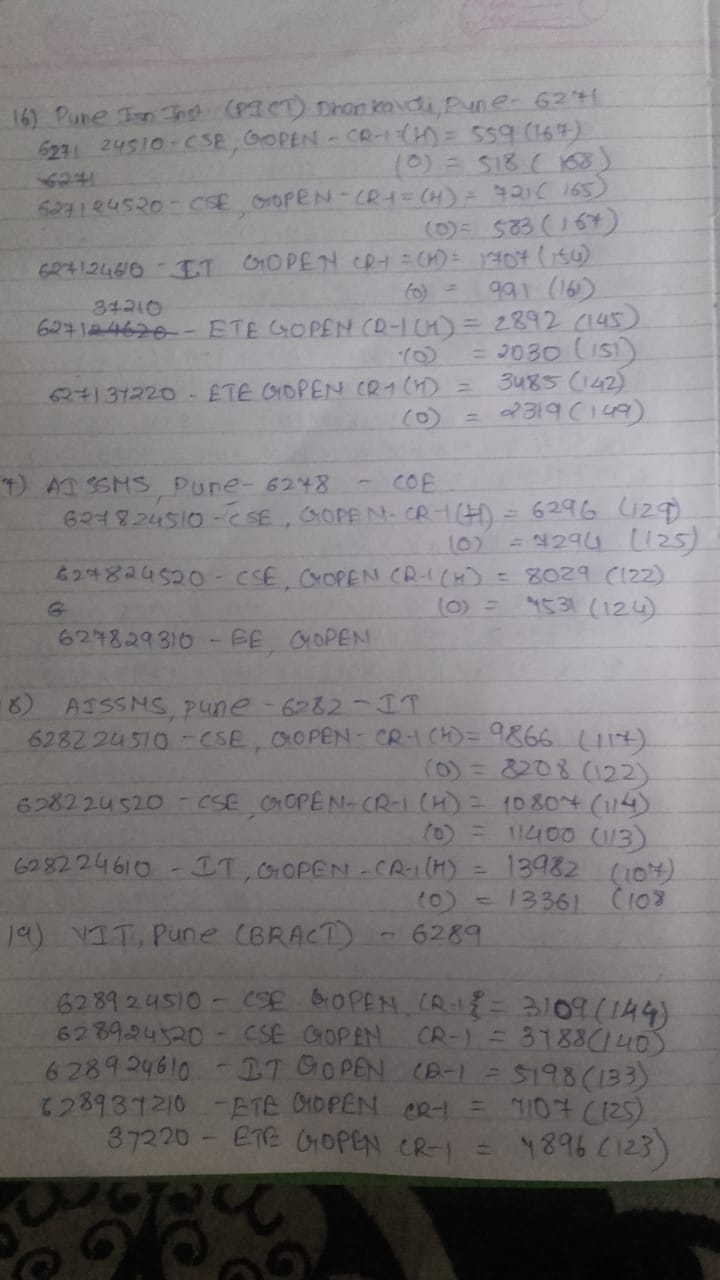 16) Pune Inst (PICT) Dhankavdi, Pune- 6271
6271 24510 - CSE, GOPEN - CR-1-(H) = 559 (167)
6271 (O) = 518 (168)
627124520 - CSE, GOPEN - CR-1 = (H) = 721 (165)
(O) = 583 (167)
627124610 - IT GOPEN CR-1 = (H) = 1707 (154)
(O) = 991 (161)
37210
627124620 - ETE GOPEN CR-1 (H) = 2892 (145)
(O) = 2030 (151)
627137220 - ETE GOPEN CR-1 (H) = 3485 (142)
(O) = 2319 (149)
7) AISSMS, Pune- 6278 - COE
627824510 - CSE, GOPEN- CR-1(H) = 6296 (129)
(O) = 7294 (125)
627824520 - CSE, GOPEN CR-1 (H) = 8029 (122)
6 (O) = 7531 (124)
627829310 - EE, GOPEN
18) AISSMS, Pune - 6282 - IT
628224510 - CSE, GOPEN- CR-1 (H) = 9866 (117)
(O) = 8208 (122)
628224520 - CSE, GOPEN- CR-1 (H) = 10807 (114)
(O) = 11400 (113)
628224610 - IT, GOPEN - CR-1(H) = 13982 (107)
(O) = 13361 (108
19) VIT, Pune (BRACT) - 6289
628924510 - CSE GOPEN CR-1 = 3109 (144)
628924520 - CSE GOPEN CR-1 = 3788 (140)
628924610 - IT GOPEN CR-1 = 5198 (133)
628937210 - ETE GOPEN CR-1 = 7107 (125)
37220 - ETE GOPEN CR-1 = 7896 (123)